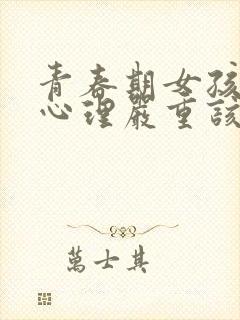 青春期女孩
心理嚴重該
萬士其